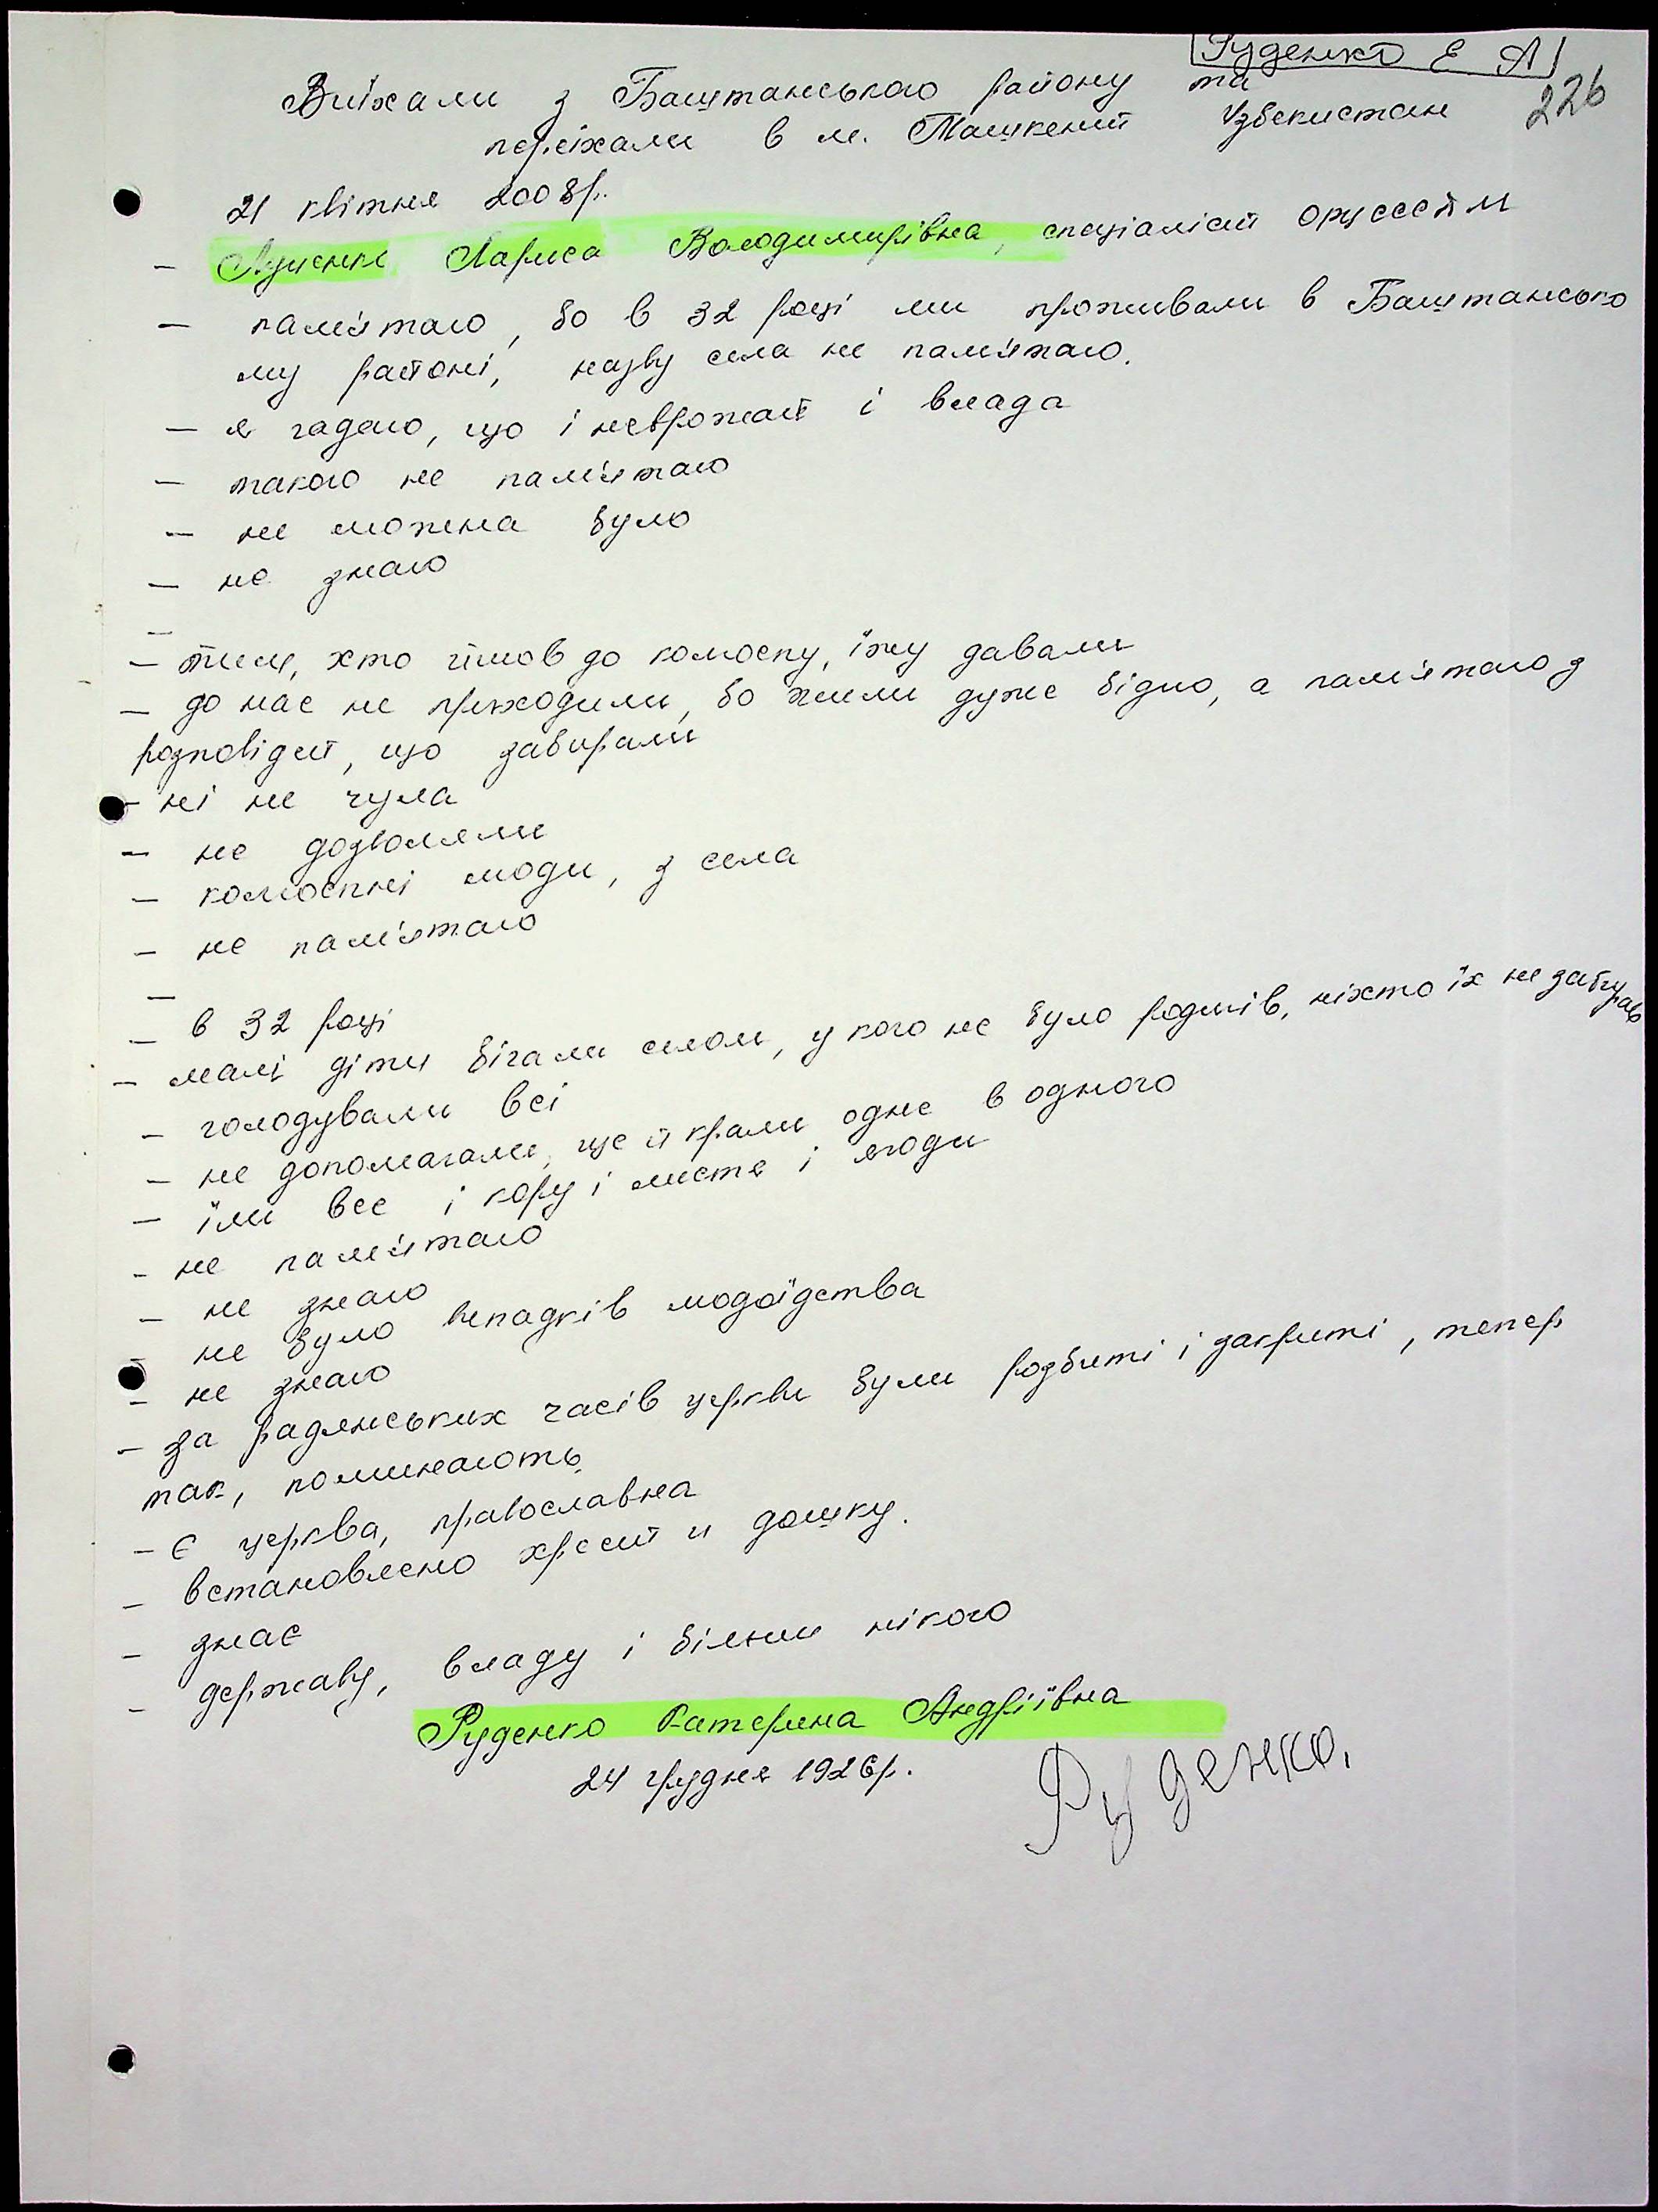 Руденко Е А
226
Виїхали з Баштанського району та
переїхали в м. Ташкент Узбекистан
21 квітня 2008р.
– Луценко Лариса Володимирівна, спеціаліст
– пам'ятаю, бо в 32 році ми проживали в Баштансько
му районі, назву села не пам'ятаю.
– я гадаю, що і неврожай і влада
– такого не пам'ятаю
– не можна було
– не знаю
–
– тим, хто йшов до колоспу, їжу давали
– до нас не приходили, бо жили дуже бідно, а пам'ятаю з
розповідей, що забирали
– ні не чула
– не дозволяли
– колоспні люди, з села
– не пам'ятаю
–
– в 32 році
– малі діти бігали селом, у кого не було родичів, ніхто їх не забирав
– голодували всі
– не допомагали, ще й крали одне в одного
– їли все і кору і листя і ягоди
– не пам'ятаю
– не знаю
– не було випадків людоїдства
– не знаю
– за радянських часів церкви були розбиті і закриті, тепер
так, поминають
– є церква, православна
– встановлено хрест и дошку.
– знає
– державу, владу і більш нікого
Руденко Катерина Андріївна
24 грудня 1926р.
Руденко.